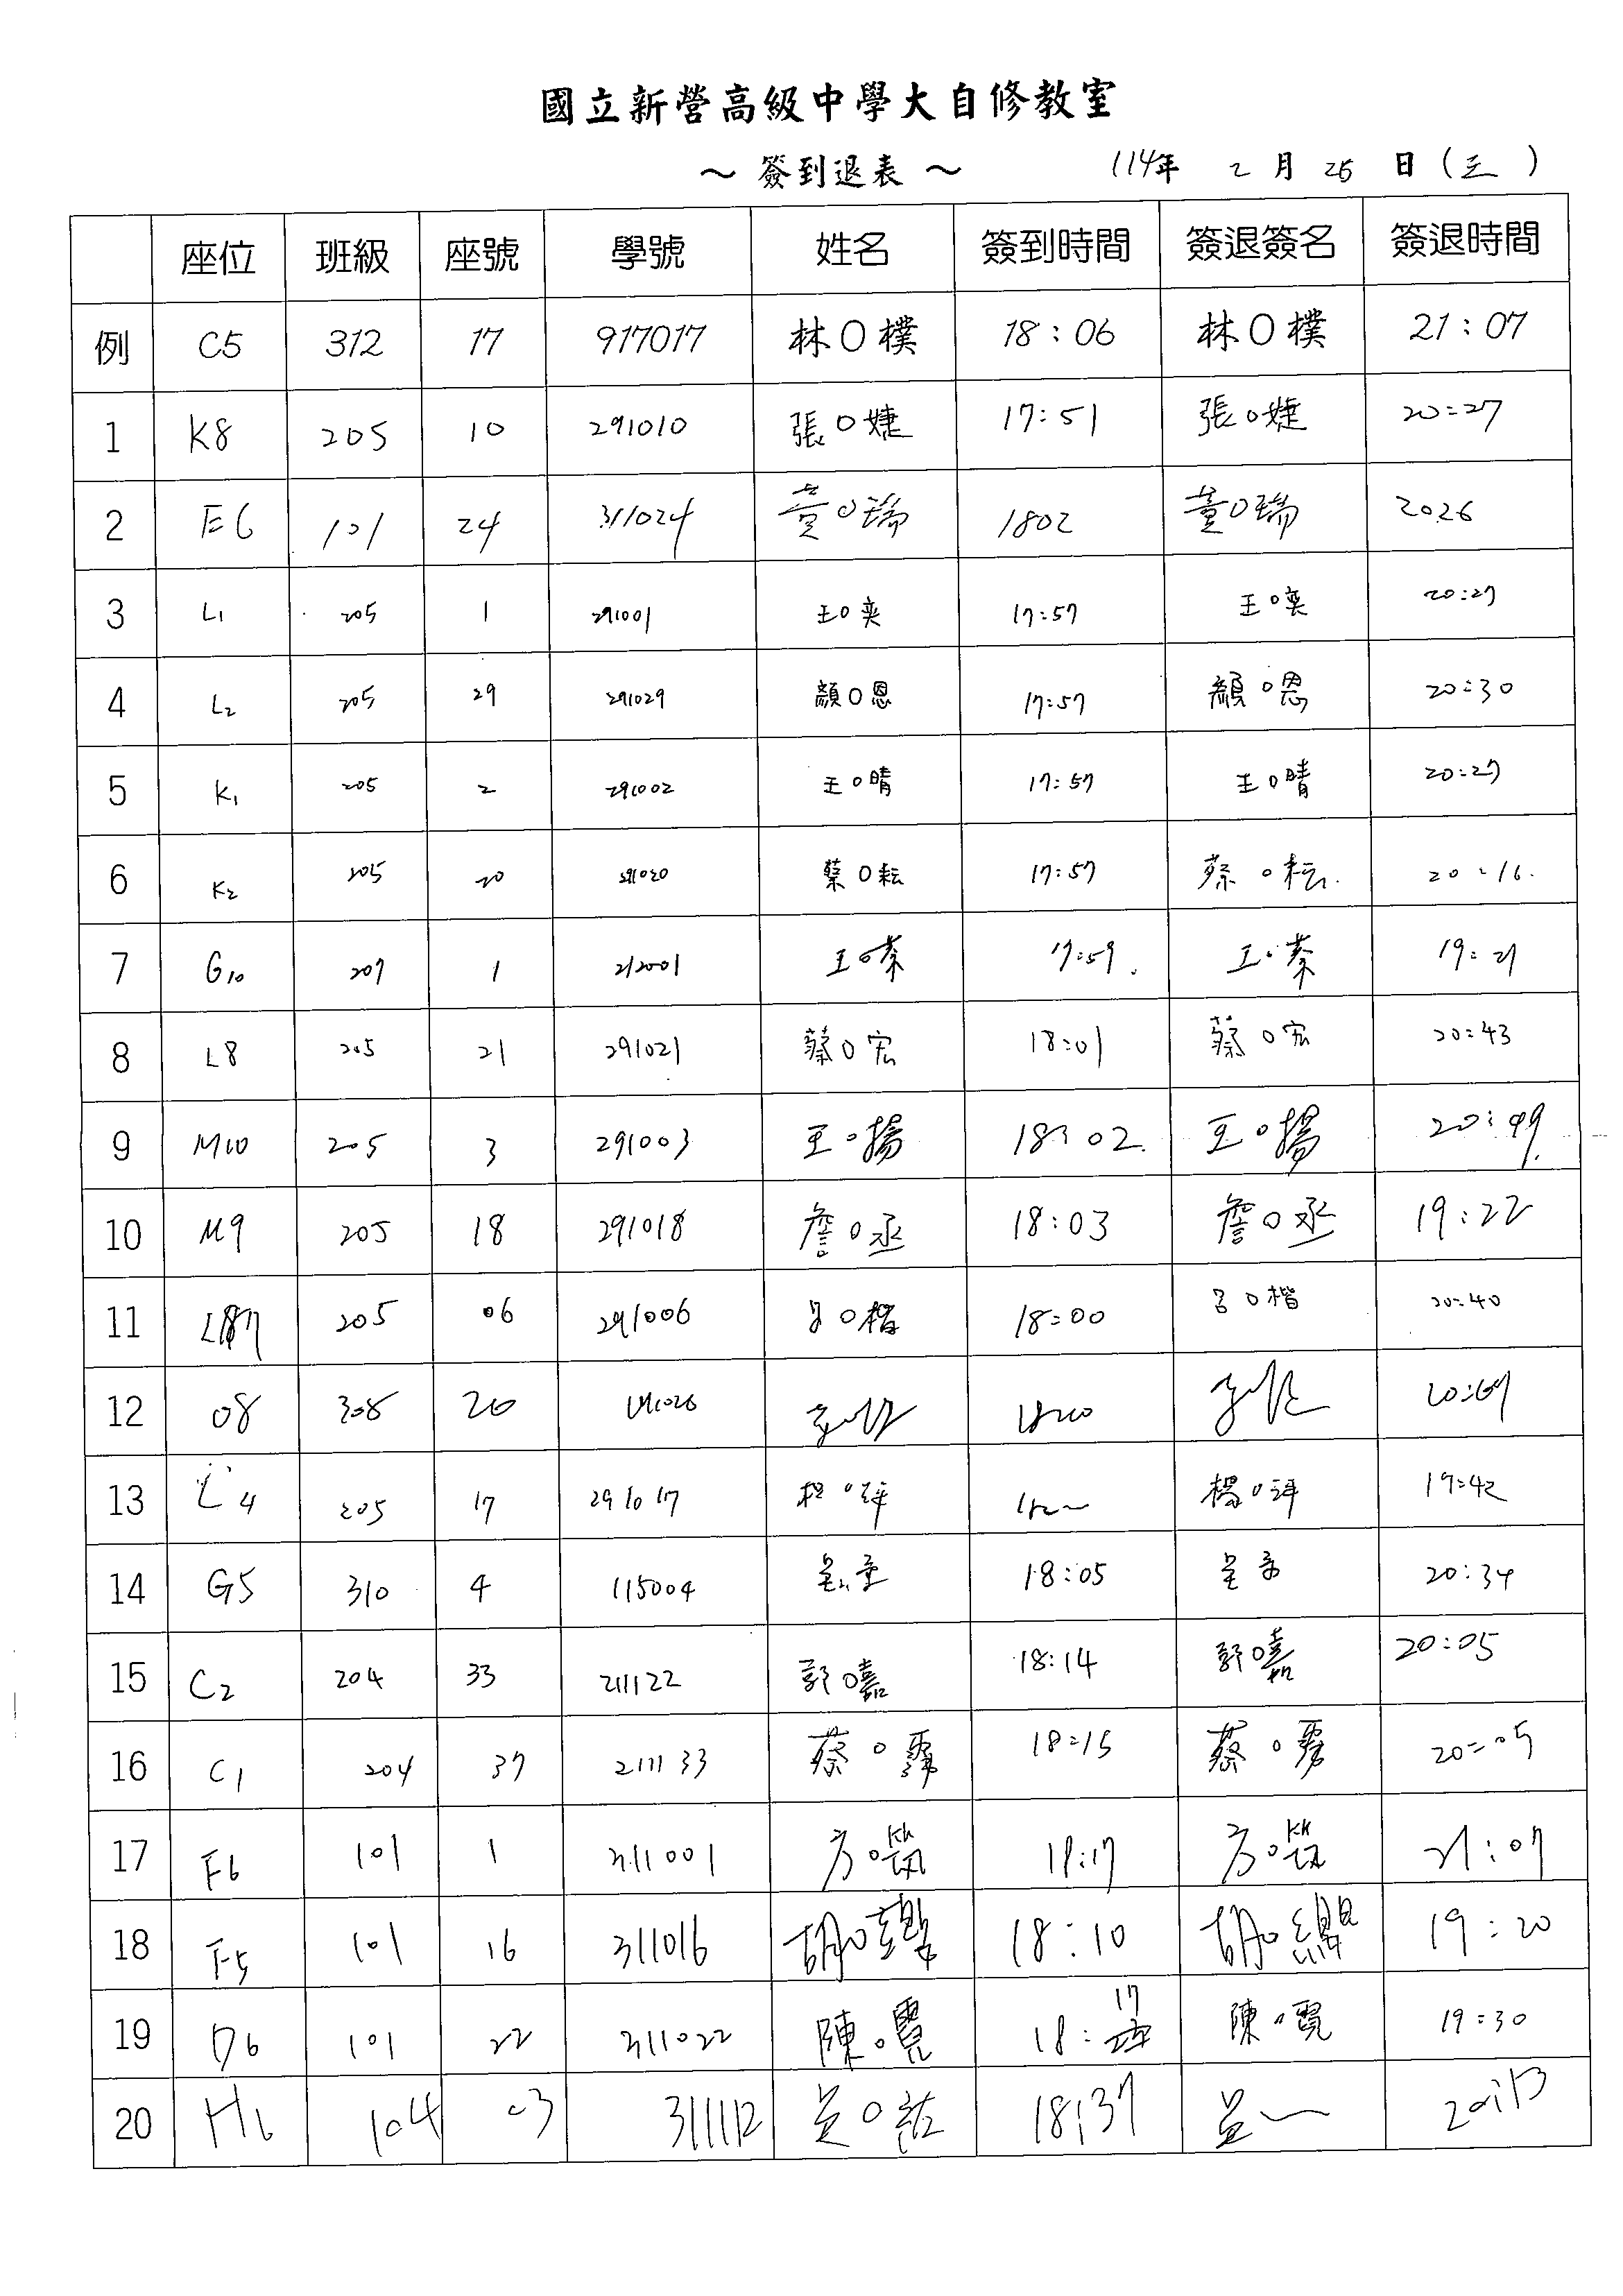 國立新營高級中學大自修教室
～ 簽到退表 ～ 114年 2 月 26 日 (三)
座位 班級 座號 學號 姓名 簽到時間 簽退簽名 簽退時間
例 C5 312 17 917017 林O樸 18:06 林O樸 21:07
1 K8 205 10 291010 張O婕 17:51 張O婕 20:27
2 E6 101 24 311024 黃O瑞 1802 黃O瑞 2026
3 L1 205 1 291001 王O奕 17:57 王O奕 20:27
4 L2 205 29 291029 顏O恩 17:57 顏O恩 20:30
5 K1 205 2 291002 王O晴 17:57 王O晴 20:27
6 K2 205 20 291020 蔡O耘 17:57 蔡O耘 20:16
7 G10 207 1 212001 王O蓁 17:59 王O蓁 19:21
8 L8 205 21 291021 蔡O宏 18:01 蔡O宏 20:43
9 M10 205 3 291003 王O揚 18:02 王O揚 20:49
10 M9 205 18 291018 詹O丞 18:03 詹O丞 19:22
11 205 06 291006 呂O楷 18:00 呂O楷 20:40
12 O8 308 26
13 L4 205 17 291017 楊O評 19:42
14 G5 310 4 115004 18:05 20:34
15 C2 204 33 211122 郭O嘉 18:14 郭O嘉 20:05
16 C1 204 37 211133 蔡O霏 18:15 蔡O 20:05
17 F6 101 1 311001 方O筑 18:17 方O筑 21:07
18 F5 101 16 311016 胡O 18:10 胡O 19:20
19 D6 101 22 311022 陳O霓 18:17 陳O霓 19:30
20 H6 104 03 311112 吳O祐 18:37 吳 20:13